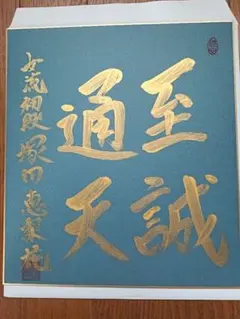 至誠
通天
女流初段 塚田恵梨花